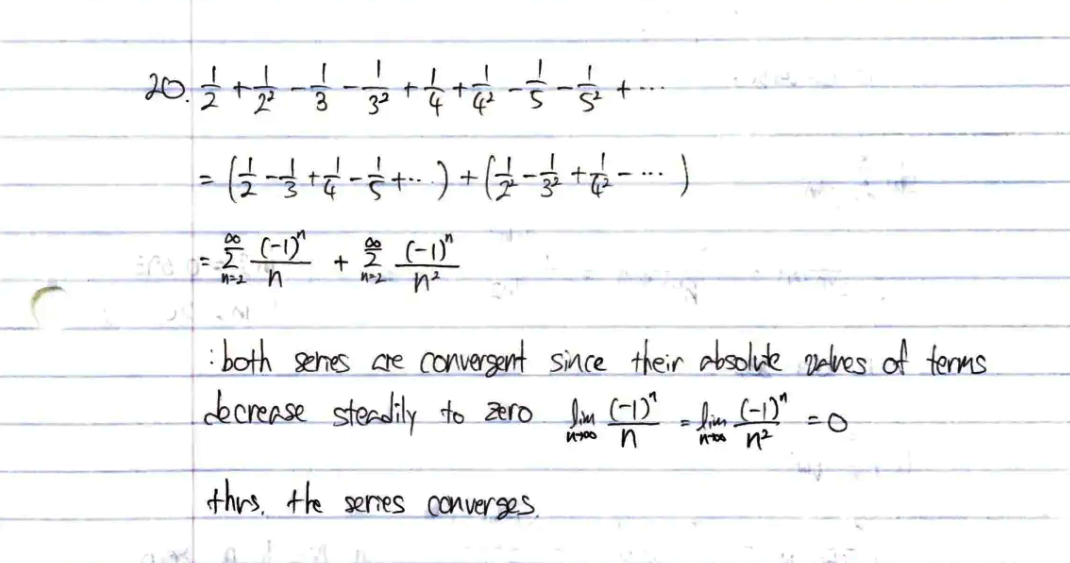 20. 1/2 + 1/2² - 1/3 - 1/3² + 1/4 + 1/4² - 1/5 - 1/5² + ...
= (1/2 - 1/3 + 1/4 - 1/5 + ...) + (1/2² - 1/3² + 1/4² - ...)
= ∑_{n=2}^{∞} (-1)ⁿ/n + ∑_{n=2}^{∞} (-1)ⁿ/n²
: both series are convergent since their absolute values of terms
decrease steadily to zero lim_{n→∞} (-1)ⁿ/n = lim_{n→∞} (-1)ⁿ/n² = 0
thus, the series converges.